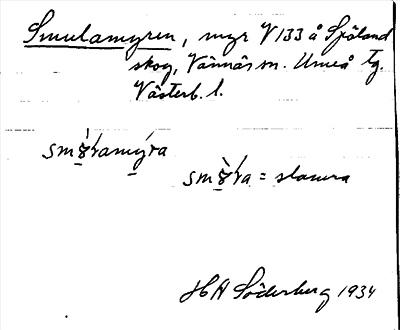 Smulamyren, myr V133 å Spöland
skog, Vännäs sn. Umeå tg.
Västerb. l.
smɣ̀ramýra
smɣ̀ra = slamra
H A Söderberg 1934